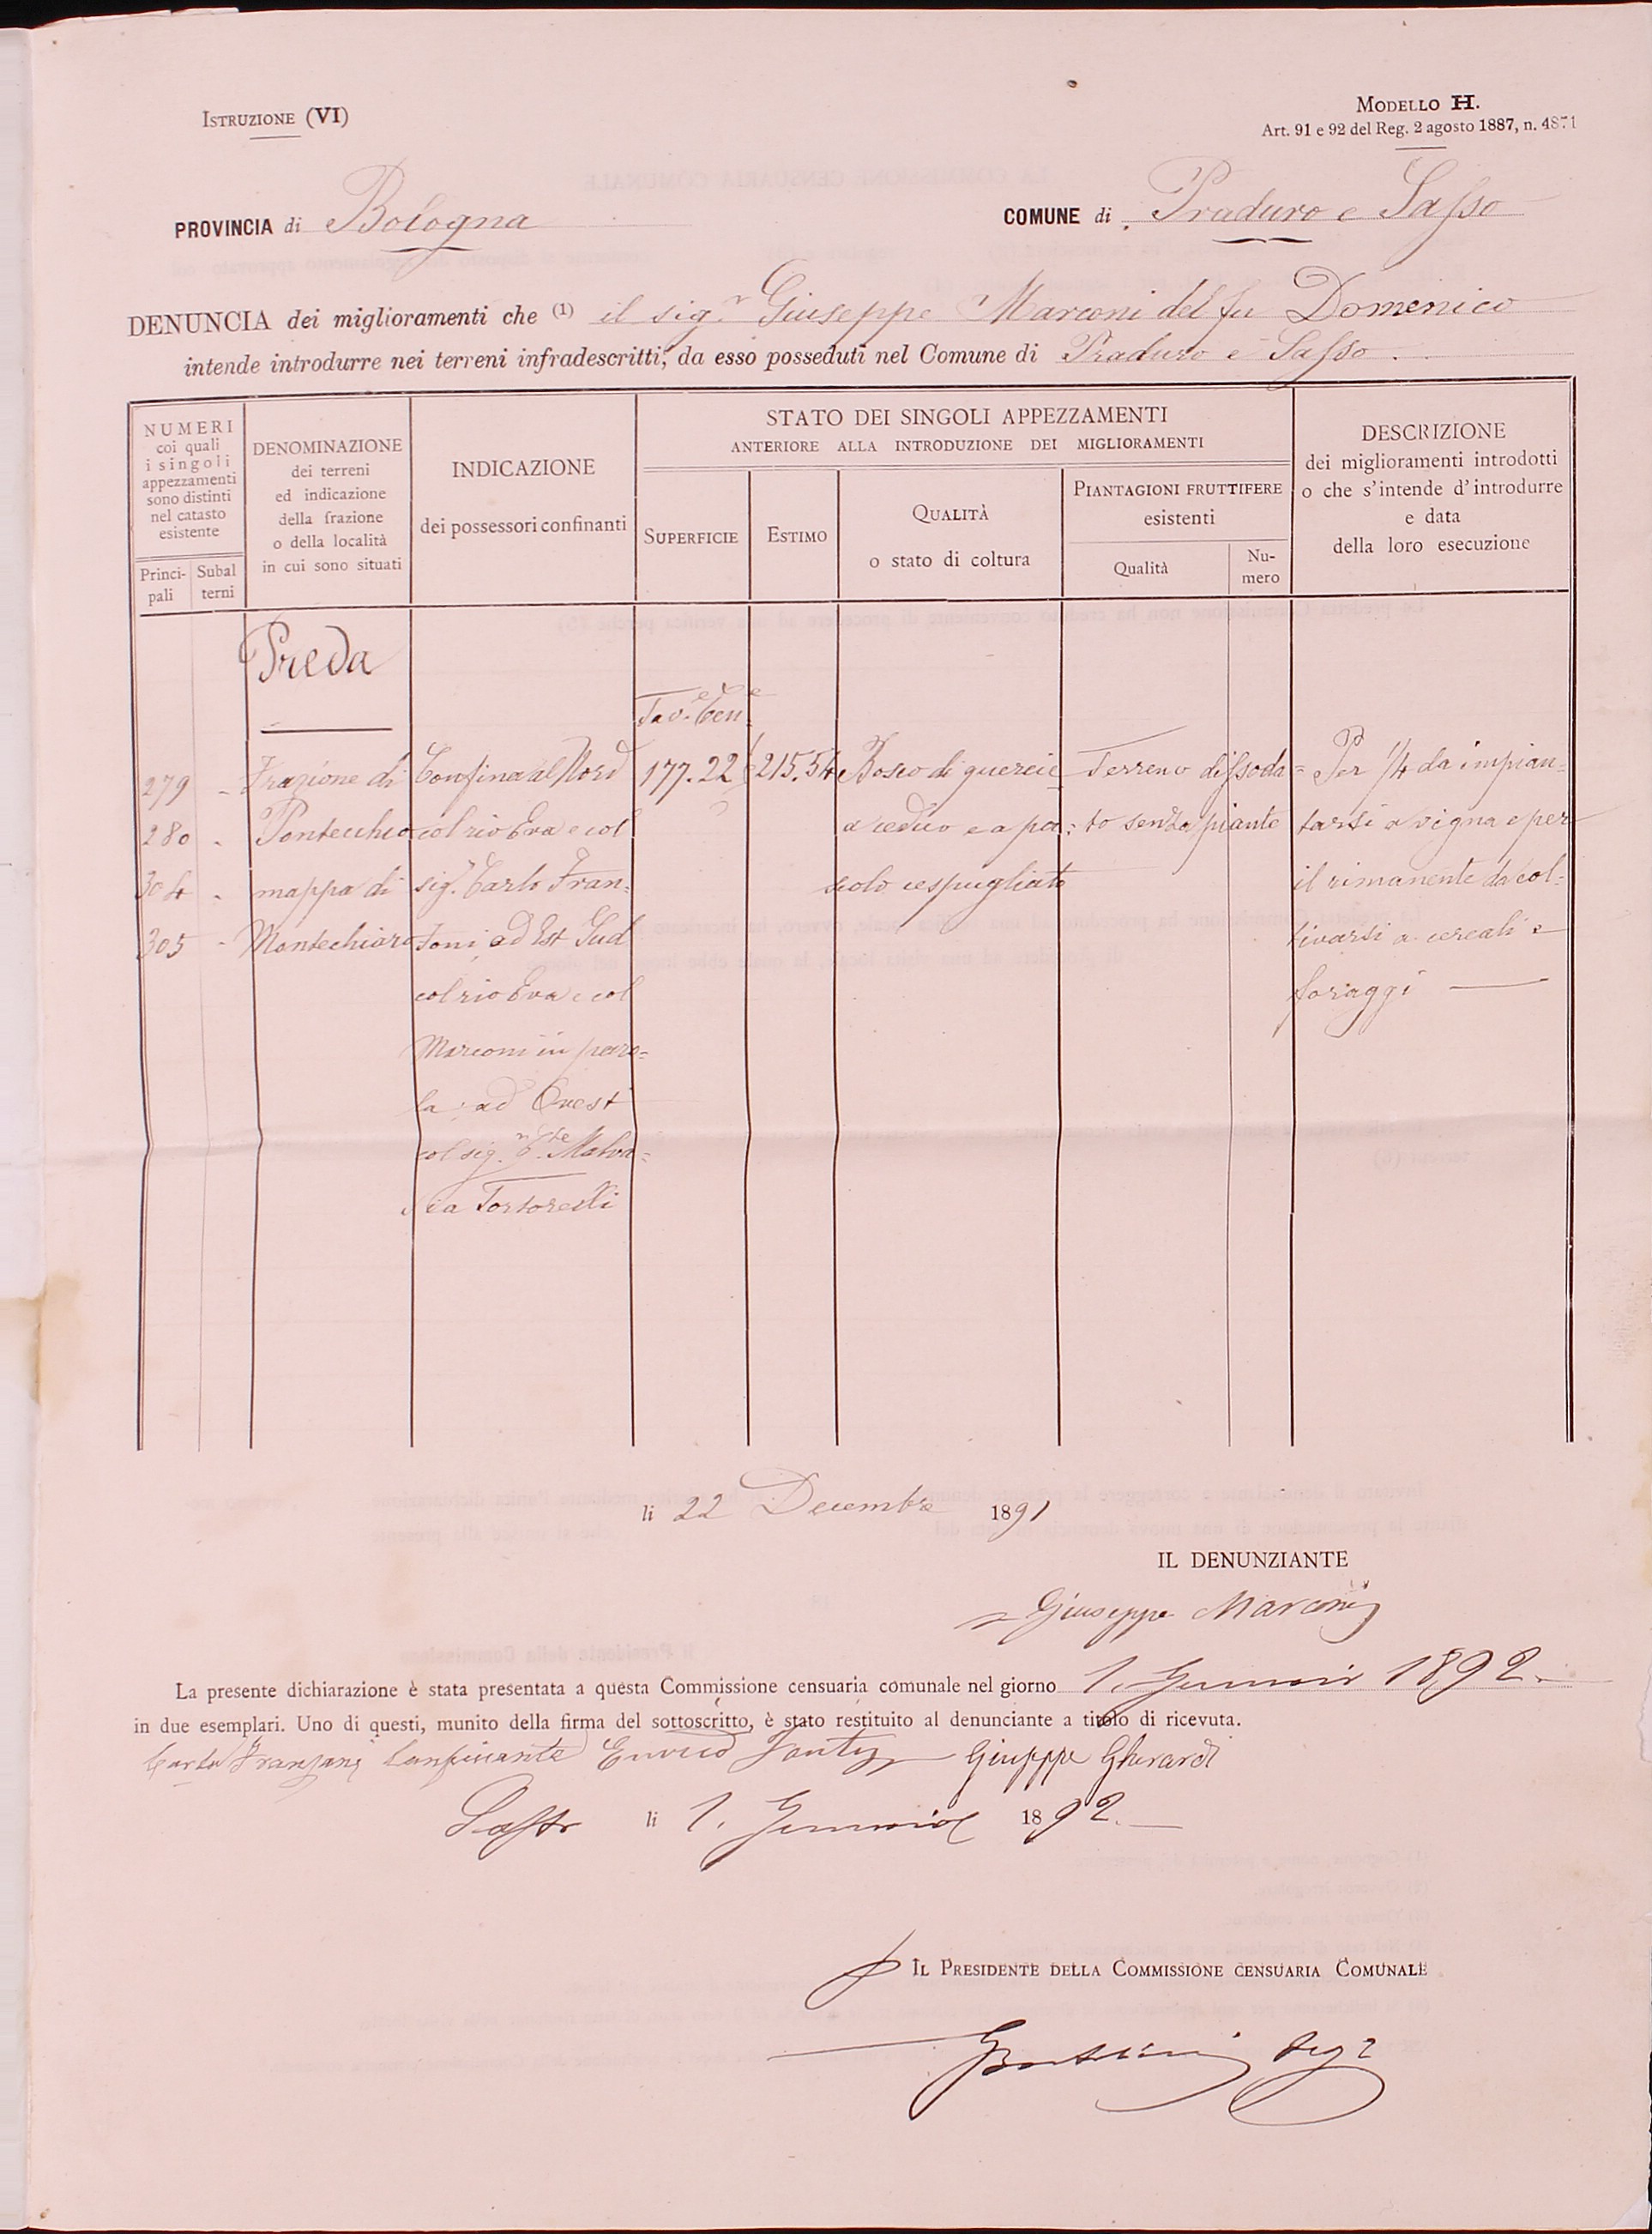 Istruzione (VI)
Modello H.
Art. 91 e 92 del Reg. 2 agosto 1887, n. 4871
PROVINCIA di Bologna
COMUNE di Praduro e Sasso
DENUNCIA dei miglioramenti che (1) il sig.r Giuseppe Marconi del fu Domenico
intende introdurre nei terreni infradescritti, da esso posseduti nel Comune di Praduro e Sasso.
NUMERI
coi quali
i singoli
appezzamenti
sono distinti
nel catasto
esistente
Princi-
pali
Subal
terni
DENOMINAZIONE
dei terreni
ed indicazione
della frazione
o della località
in cui sono situati
INDICAZIONE
dei possessori confinanti
STATO DEI SINGOLI APPEZZAMENTI
ANTERIORE ALLA INTRODUZIONE DEI MIGLIORAMENTI
Superficie
Estimo
Qualità
o stato di coltura
Piantagioni fruttifere
esistenti
Qualità
Nu-
mero
DESCRIZIONE
dei miglioramenti introdotti
o che s'intende d'introdurre
e data
della loro esecuzione
279
280
304
305
Preda
Frazione di
Pontecchio
mappa di
Montechiaro
Confina al Nord
col rio Eva e col
sig.r Carlo Fran=
zoni, ad Est Sud
col rio Eva e col
Marconi in paro=
la: ad Ovest
col sig.r C.te Malva=
sia Tortorelli
Tav.e Cen.e
177.22
215.54
Bosco di quercie
a ceduo e a pa=
scolo cespugliato
Terreno dissoda=
to senza piante
Per 1/4 da impian=
tarsi a vigna e per
il rimanente da col=
tivarsi a cereali e
foraggi
li 22 Decembre 1891
IL DENUNZIANTE
Giuseppe Marconi
La presente dichiarazione è stata presentata a questa Commissione censuaria comunale nel giorno 1. Gennaio 1892
in due esemplari. Uno di questi, munito della firma del sottoscritto, è stato restituito al denunciante a titolo di ricevuta.
Carlo Franzoni Confinante Giuseppe Gherardi
Sasso li 1. Gennaio 1892.
Il Presidente della Commissione censuaria Comunale